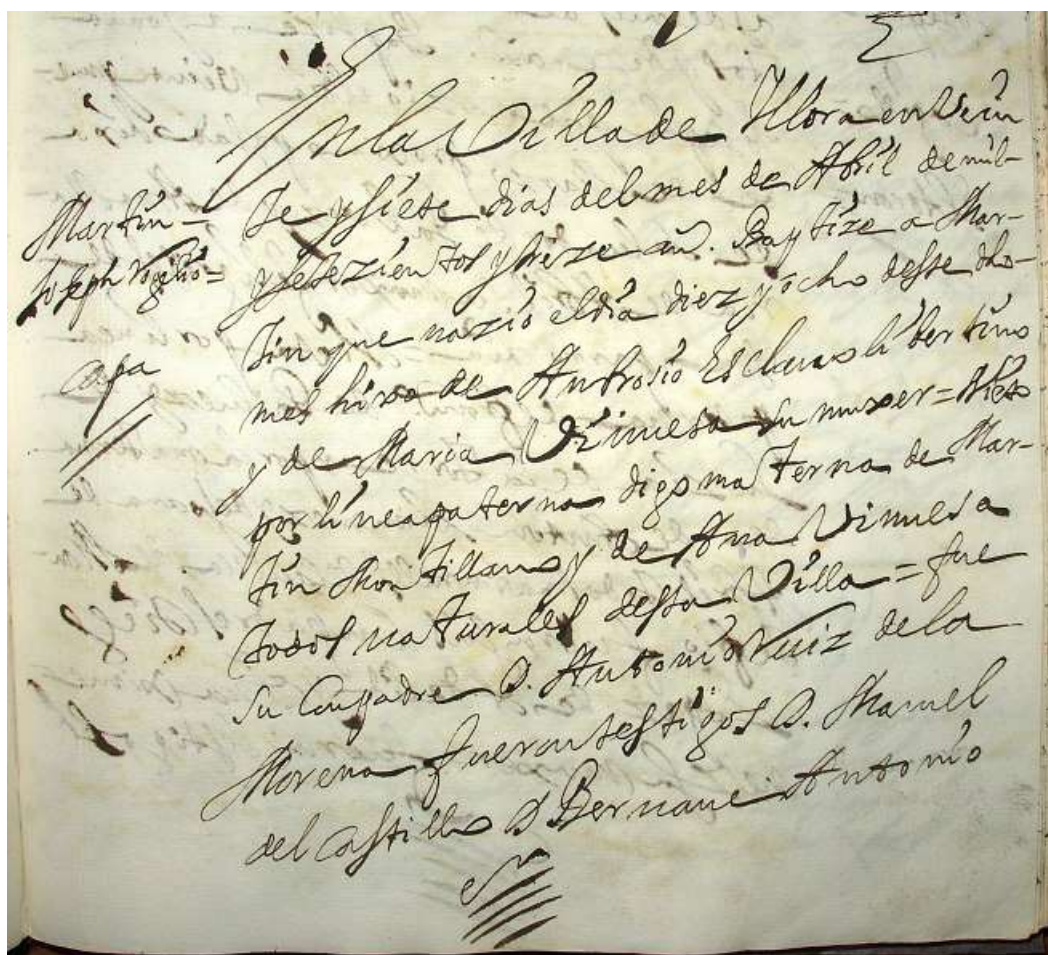 En la Villa de Yllora en Vein
Martin =
te y siete dias del mes de Abril de mil
Joseph Vogelio =
y setezientos y treze añ. Baptize a Mar-
tin que nazio el dia diez y ocho desse dho
casa
mes hixo de Anbrosio Esclavo libertino
y de Maria Vimesa su muxer = Nieto
por linea paterna digo materna de Mar-
tin Montillano y de Ana Vimesa
todos naturales dessa Villa = fue
su Conpadre D. Antonio Ruiz de la
Morena fueron testigos D. Manuel
del Castillo D Bernave Antonio